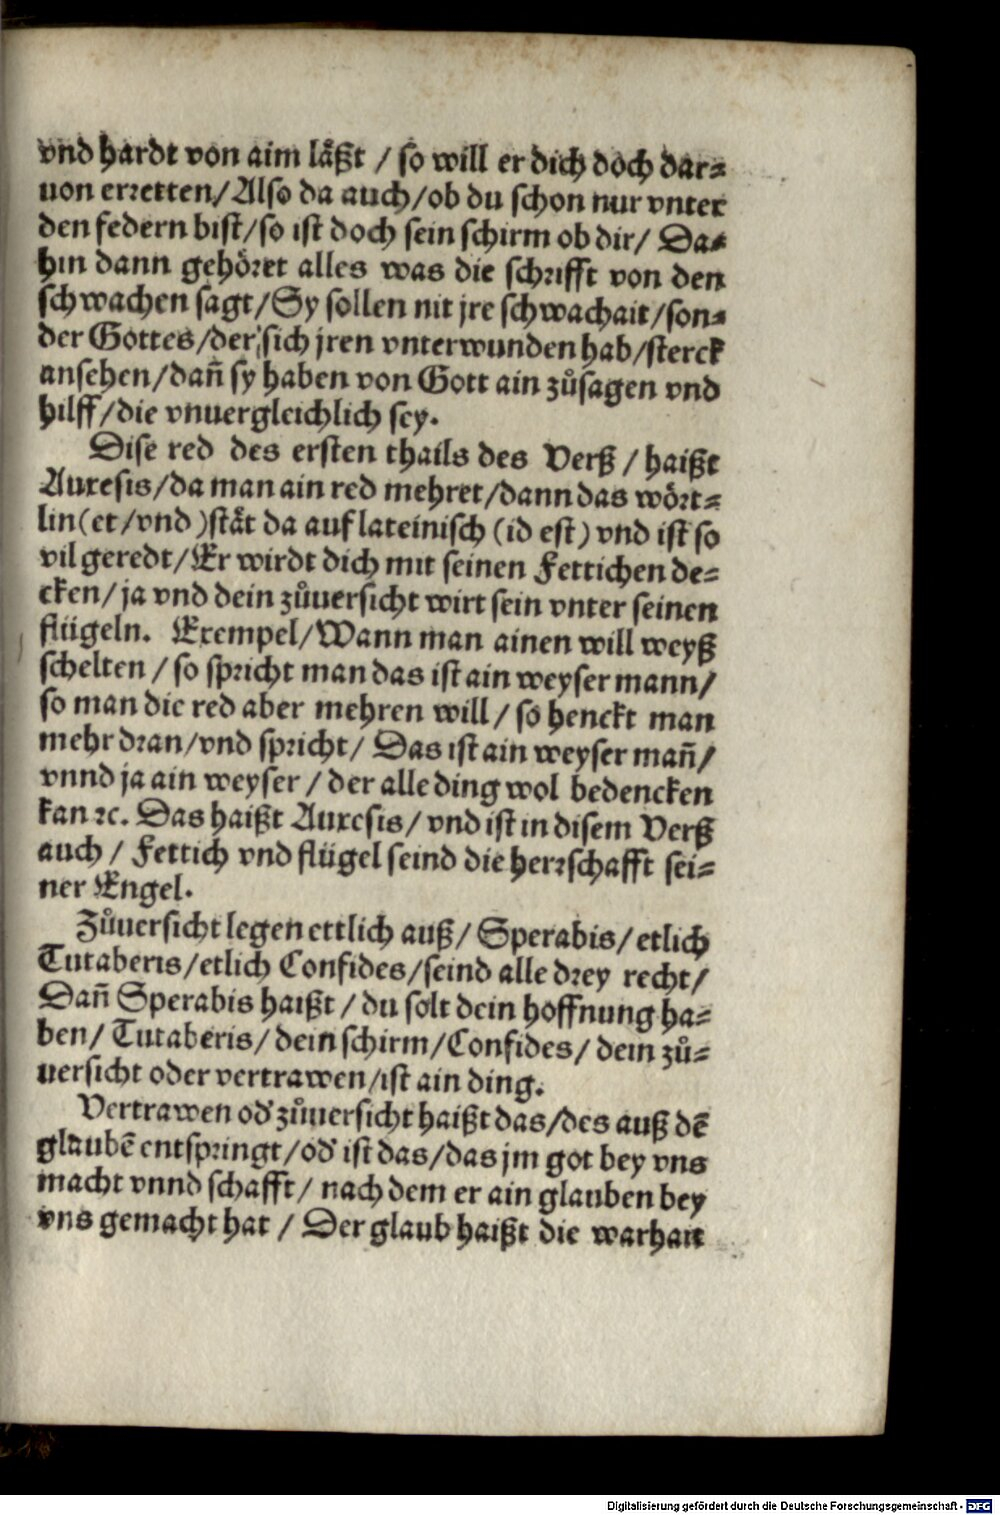 vnd hardt von aim laͤßt / so will er dich doch dar⸗
uon erretten/Also da auch/ob du schon nur vnter
den federn bist/so ist doch sein schirm ob dir/ Da⸗
hin dann gehoͤret alles was die schrifft von den
schwachen sagt/Sy sollen nit jre schwachait/son⸗
der Gottes/der sich jren vnterwunden hab/sterck
ansehen/dañ sy haben von Gott ain zůsagen vnd
hilff/die vnuergleichlich sey.
Dise red des ersten thails des Verß / haißt
Auxesis/da man ain red mehret/dann das woͤrt⸗
lin(et/vnd)staͤt da auf lateinisch (id est) vnd ist so
vil geredt/Er wirdt dich mit seinen Fettichen de⸗
cken/ja vnd dein zůuersicht wirt sein vnter seinen
fluͤgeln. Exempel/Wann man ainen will weyß
schelten / so spricht man das ist ain weyser mann/
so man die red aber mehren will / so henckt man
mehr dran/vnd spricht/ Das ist ain weyser mañ/
vnnd ja ain weyser / der alle ding wol bedencken
kan ꝛc. Das haißt Auxesis/ vnd ist in disem Verß
auch / Fettich vnd fluͤgel seind die herrschafft sei⸗
ner Engel.
Zůuersicht legen ettlich auß/ Sperabis/etlich
Tutaberis/etlich Confides/seind alle drey recht/
Dañ Sperabis haißt / du solt dein hoffnung ha⸗
ben/ Tutaberis/ dein schirm/Confides/ dein zů⸗
uersicht oder vertrawen/ist ain ding.
Vertrawen od' zůuersicht haißt das/des auß dē
glaubē entspringt/od' ist das/das jm got bey vns
macht vnnd schafft/ nach dem er ain glauben bey
vns gemacht hat / Der glaub haißt die warhait
Digitalisierung gefördert durch die Deutsche Forschungsgemeinschaft - DFG